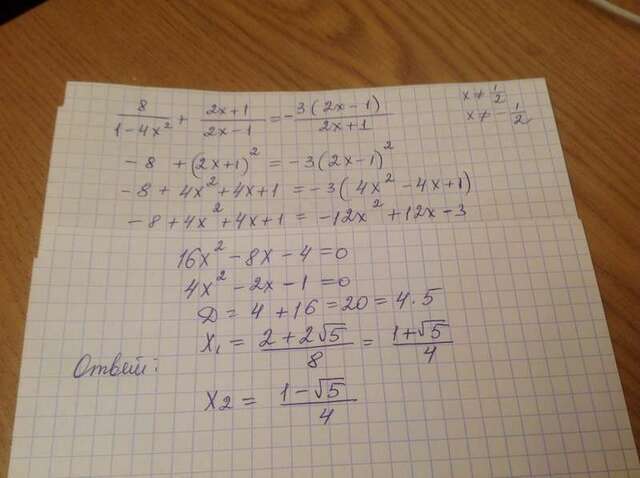 8/(1-4x²) + (2x+1)/(2x-1) = -3(2x-1)/(2x+1)
x≠1/2
x≠-1/2
-8 + (2x+1)² = -3(2x-1)²
-8 + 4x² + 4x + 1 = -3(4x² - 4x + 1)
-8 + 4x² + 4x + 1 = -12x² + 12x - 3
16x² - 8x - 4 = 0
4x² - 2x - 1 = 0
Д = 4 + 16 = 20 = 4·5
x₁ = (2+2√5)/8 = (1+√5)/4
Ответ:
x2 = (1-√5)/4